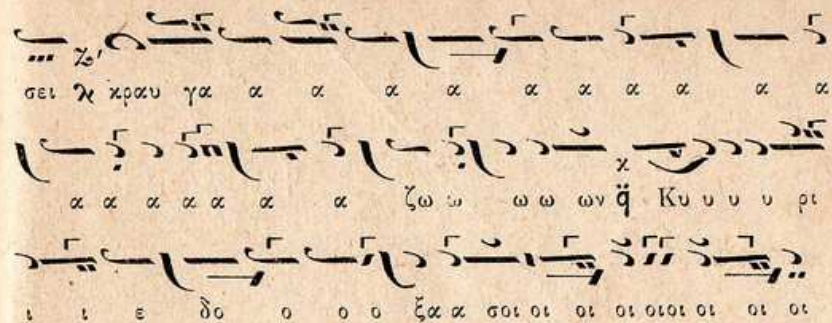 σει ϗ κραυ γα α α α α α α α α α
α α α α α α α ζω ω ω ω ων Κυ υ υ υ ρι
ι ι ε δο ο ο ο ξα α σοι οι οι οι οιοι οι οι οι